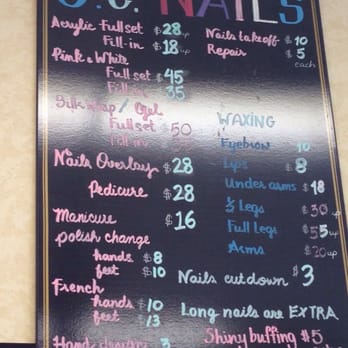 NAILS
Acrylic Full set $28 up
Fill-in $18 up
Pink & White
Full set $45
Fill in 35
Silk wrap / Gel
Full set $50
Fill in 35
Nails Overlay $28
Pedicure $28
Manicure $16
polish change
hands $8
feet $10
French
hands $10
feet $13
3
Nails take off $10
Repair $5
each
WAXING
Eyebrow 10
Lips $8
Under arms $18
½ Legs $30 up
Full Legs $55 up
Arms $20 up
Nails cut down $3
Long nails are EXTRA
Shiny buffing $5